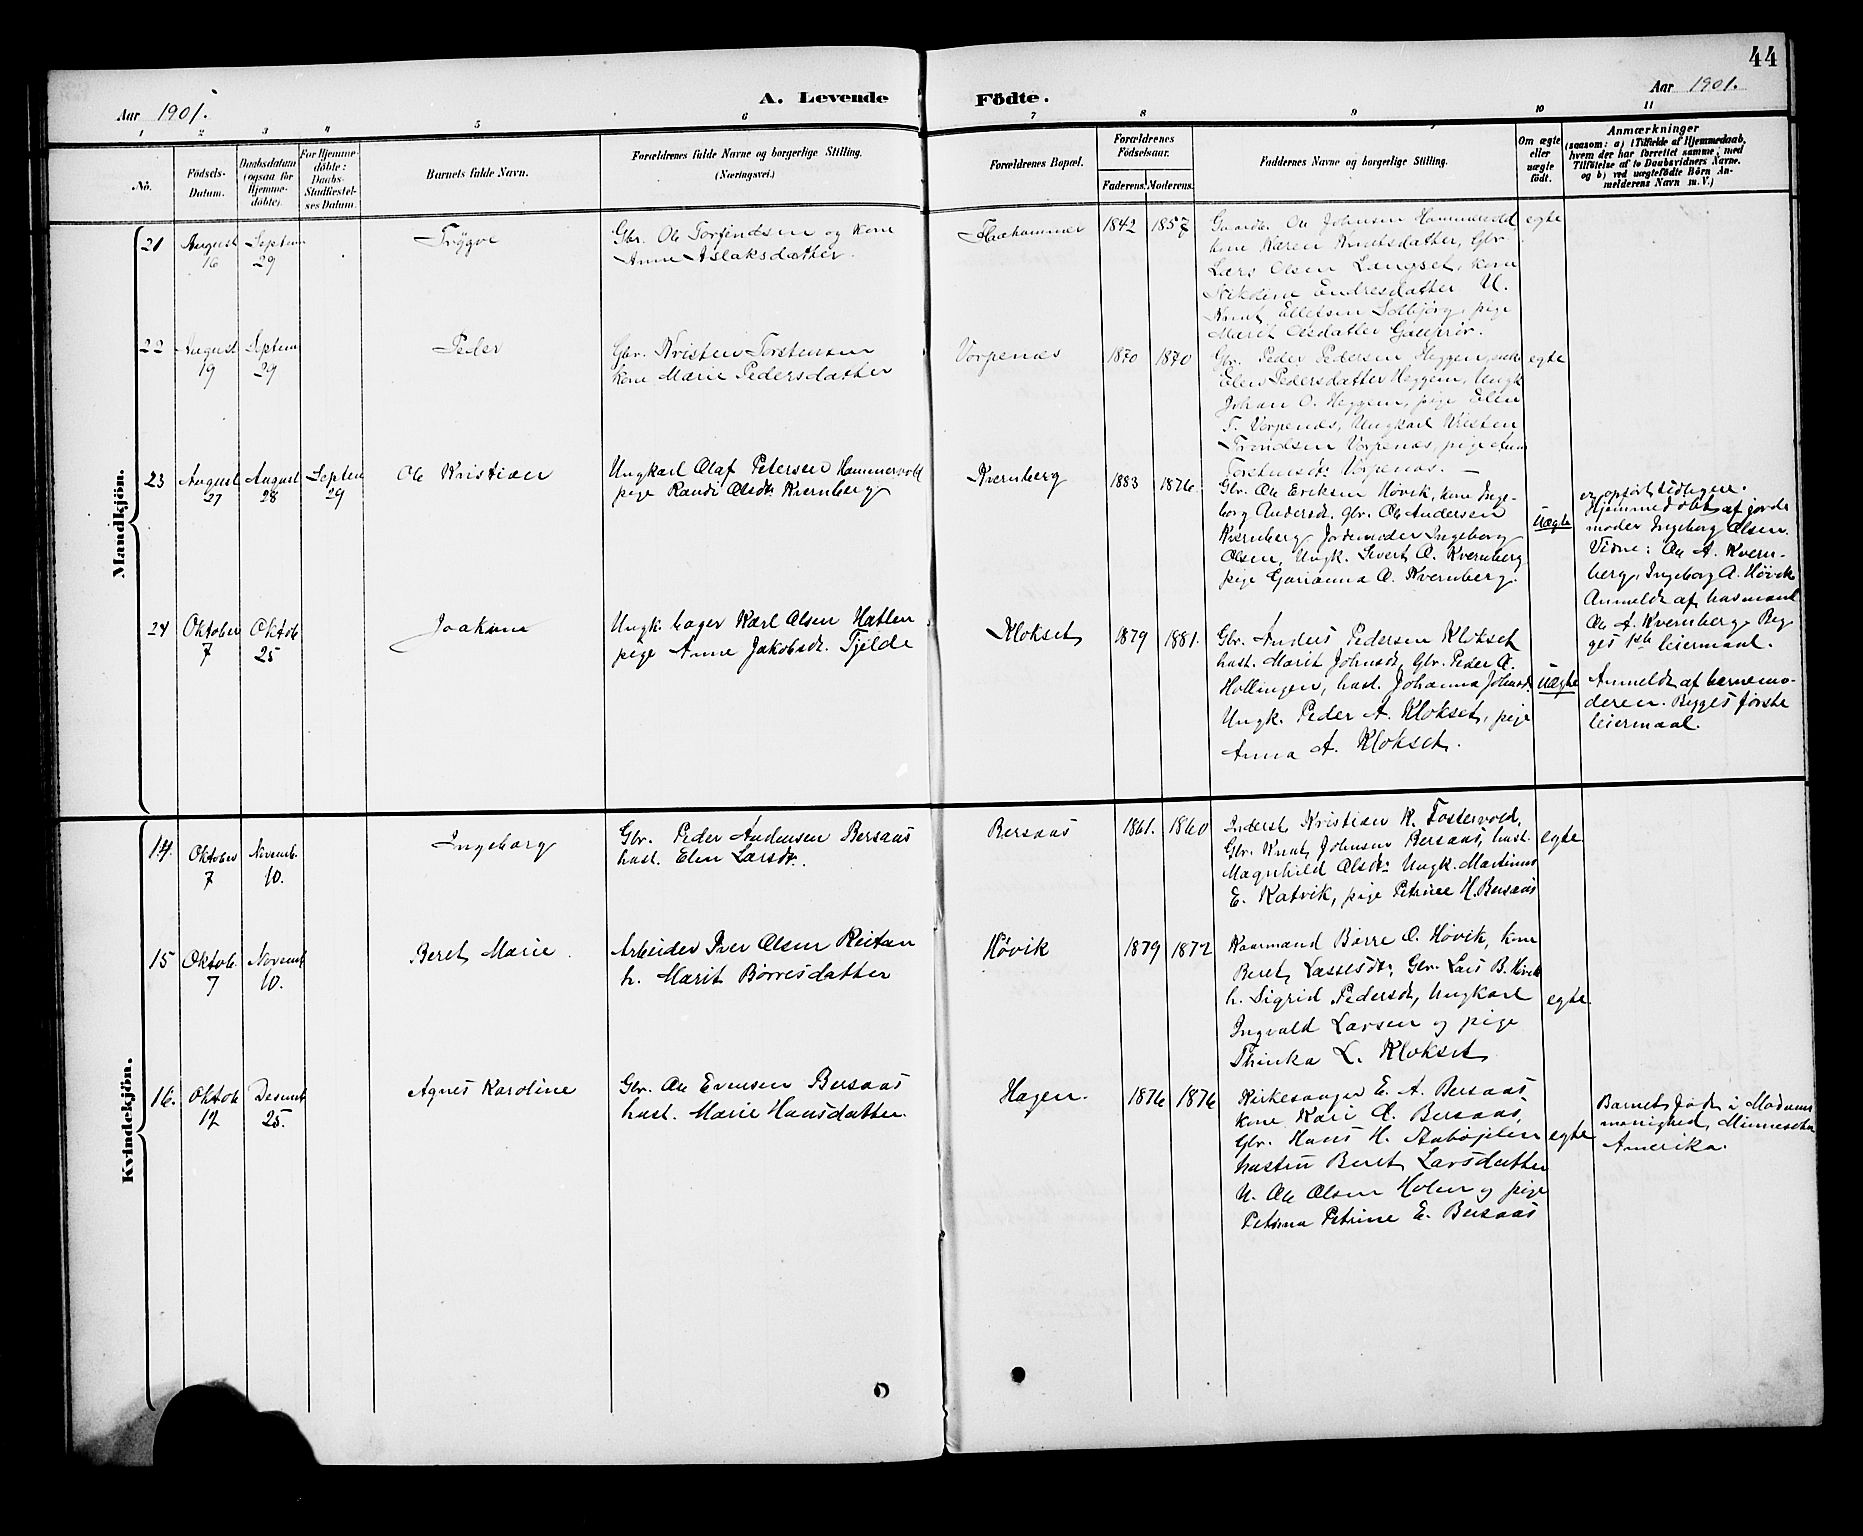 44
Aar 1901.
A. Levende Födte.
Aar 1901.
1 2 3 4 5 6 7 8 9 10 11
No.
Födsels-
Datum.
Daabsdatum
(ogsaa for
Hjemme-
döbte).
For Hjemme-
döbte:
Daabs-
Stadfæstel-
ses Datum.
Barnets fulde Navn.
Forældrenes fulde Navne og borgerlige Stilling.
(Næringsvei.)
Forældrenes Bopæl.
Forældrenes
Födselsaar.
Faderens. Moderens.
Faddernes Navne og borgerlige Stilling.
Om ægte
eller
uægte
födt.
Anmærkninger
(saasom: a) i Tilfælde af Hjemmedaab,
hvem der har forrettet samme, med
Tilföielse af to Daabsvidners Navne,
og b) ved uægtefödte Börn An-
melderens Navn m. V.)
Mandkjön.
21
August
16
Septem
29
Trygve
Gbr. Ole Torfindsen og kone
Anne Aslaksdatter.
1842 1857
Gaardbr. Ole Johnsen Hammervold
kone Karen Knutsdatter, Gbr
Lars Olsen Langset, kone
Nikoline Endresdatter U.
Knut Ellefsen Solbjørg, pige
Marit Olsdatter
egte
22
August
19
Septem
29
Peder
Gbr. Kristen Torstensen
kone Marie Pedersdatter
Vorpenæs
1870 1870
Gbr. Peder Pedersen Heggem,
Elen Pedersdatter Heggem, Ungk
Johan O. Heggem, pige Elen
T. Vorpenæs, Ungkarl Kristen
Trondsen Vorpenæs, pige
Torstensdtr. Vorpenæs.
egte
23
August
27
August
28
Septem
29
Ole Kristian
Ungkarl Olaf Petersen Hammervold
pige Randi Olsdtr. Kvernberg
Kvernberg
1883 1876.
Gbr. Ole Eriksen Høvik, kone Inge-
borg Andersdt. gbr. Ole Andersen
Kvernberg Jordemoder Ingeborg
Olsen, Ungk. Sivert O. Kvernberg
pige Gurianna O. Kvernberg.
Uægte
er opført tidligere.
Hjemmedøbt af jorde
moder Ingeborg Olsen.
Vidne: Ole A. Kvern-
berg, Ingeborg A. Høvik
Anmeldt af husmand
Ole A. Kvernberg. Beg
ges 1ste leiermaal.
24
Oktober
7
Oktob
25
Joakim
Ungk. bager Karl Olsen Hatlen
pige Anne Jakobsdt. Tjelde
Klokset
1879 1881.
Gbr. Anders Pedersen Klokset
hust. Marit Johnsdt, Gbr. Peder A.
Hollingen, hust. Johanna Johnsdt.
Ungk. Peder A. Klokset, pige
Anna A. Klokset.
Uægte
Anmeldt af barnemo-
deren. Begges første
leiermaal.
Kvindekjön.
14.
Oktober
7
Novemb.
10.
Ingeborg
Gbr. Peder Andersen Bersaas
hust. Elen Larsdtr.
Bersaas
1861. 1860
Inderst Kristian K. Fostervold,
Gbr. Knut Johnsen Bersaas, hust.
Magnhild Olsdtr. Ungk. Martinus
E. Katvik, pige Petrine H. Bersaas
egte.
15
Oktob.
7
Novemb
10.
Beret Marie
Arbeider Iver Olsen Reitan
h. Marit Børresdatter
Høvik
1879 1872
Kaarmand Børre O. Høvik, kone
Beret Lassesdt, Gbr. Lars B. Høvik
h. Sigrid Pedersdt, Ungkarl
Ingvald Larsen og pige
Thinka L. Klokset
egte.
16.
Oktob
12
Desemb
25.
Agnes Karoline
Gbr. Ole Evensen Bersaas
hust. Marie Hansdatter.
Hagen.
1876 1876
Kirkesanger E. A. Bersaas
kone Kari O. Bersaas,
Gbr. Hans H. Aabøjelen
hustru Beret Larsdatter
U. Ole Olsen Holen og pige
Petrina Petrine E. Bersaas
egte
Barnet født i
menighed, Minnesota
Amerika.